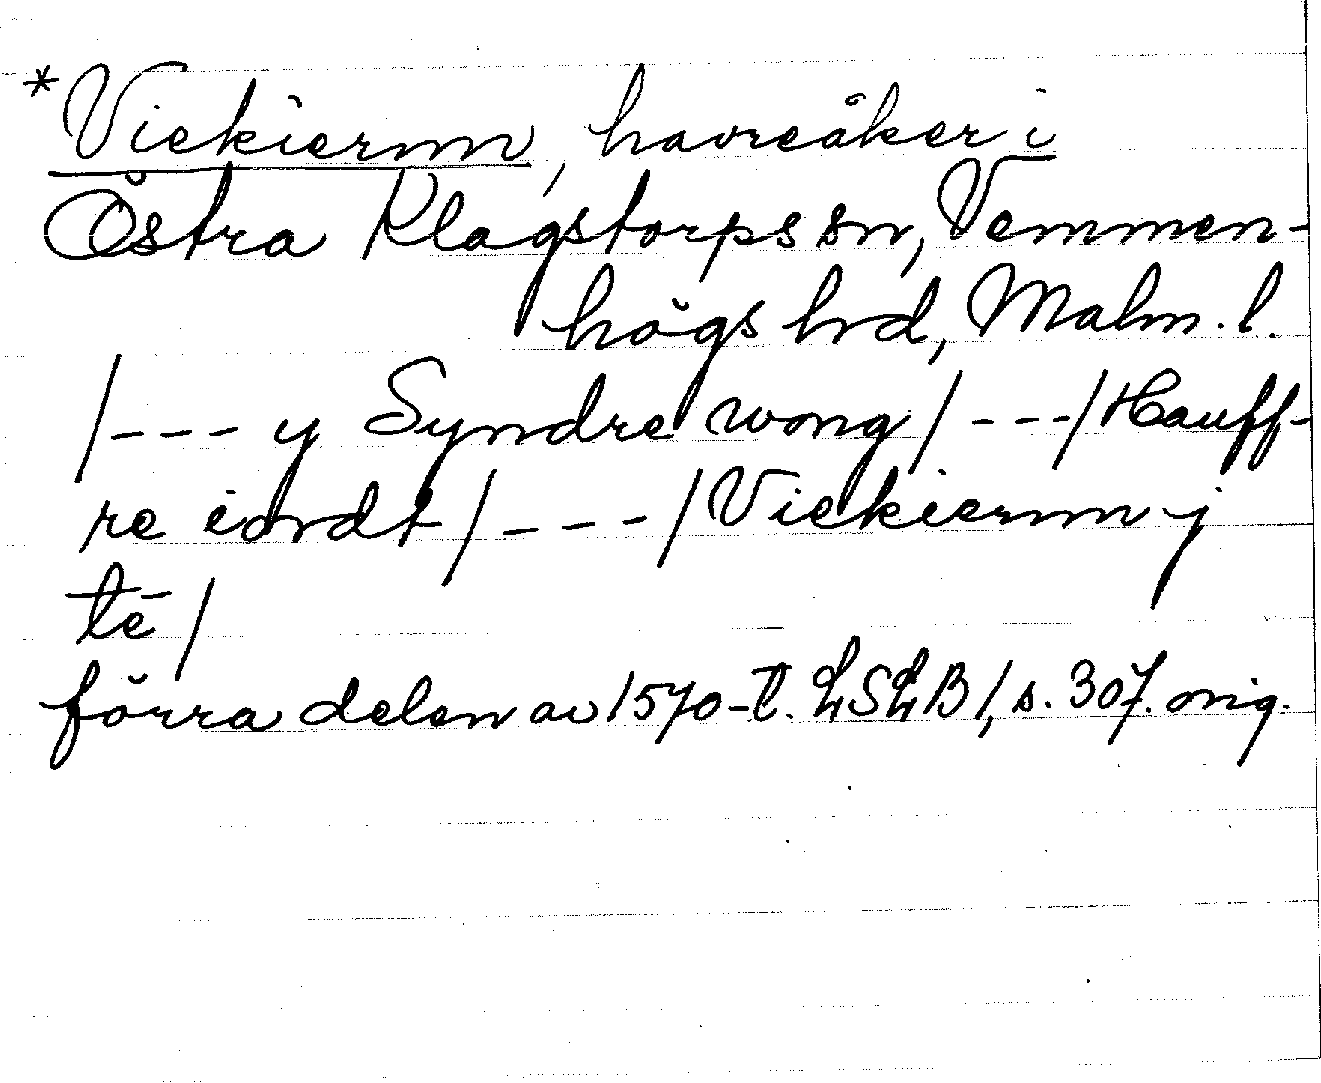 *Viekiernn, havreåker i
Östra Klagstorps sn, Vemmen-
högs hrd, Malm. l.
/--- y Syndre wong/---/Hauff-
re iordt/---/Viekiernn j
tē/
förra delen av 1570-t. LSLB 1, s. 307. orig.